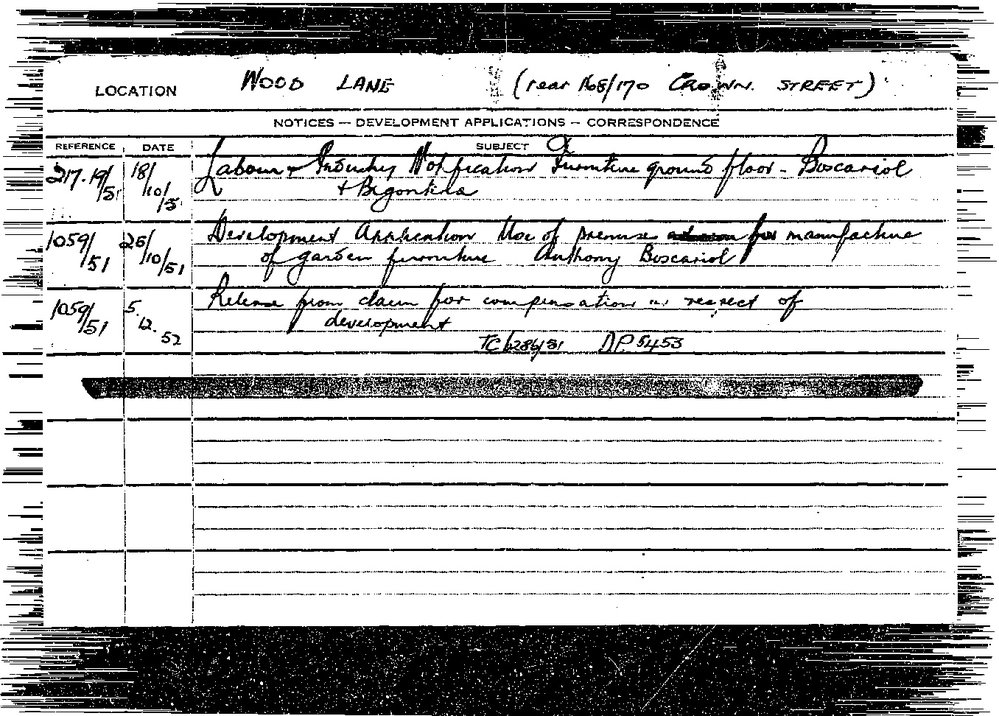 LOCATION WOOD LANE (rear 168/170 CROWN STREET)
NOTICES — DEVELOPMENT APPLICATIONS — CORRESPONDENCE
REFERENCE DATE SUBJECT
217.19/51 18/10/51 Labour & Industry Notification Furniture ground floor - Boscariol
+
1059/51 26/10/51 Development Application Use of premise for manufacture
of garden furniture Anthony Boscariol
1059/51 5.12.52 Release from claim for compensation in respect of
development
TC 6286/31 DP 5453